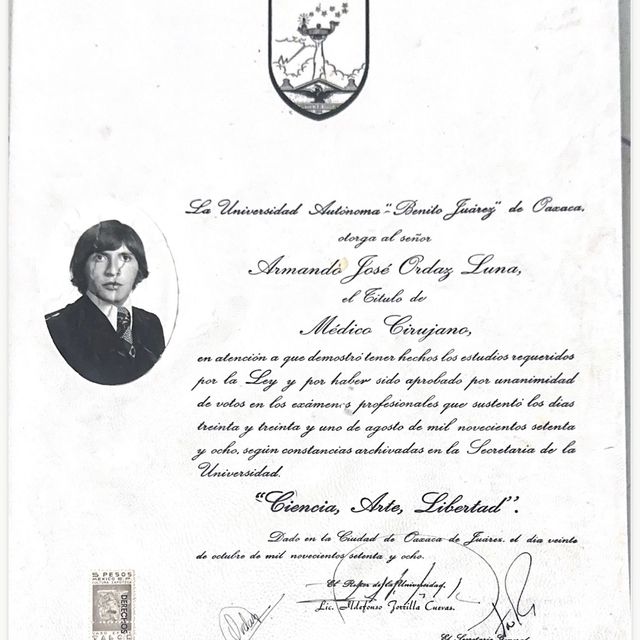 La Universidad Autónoma "Benito Juárez" de Oaxaca,
otorga al señor
Armando José Ordaz Luna,
el Título de
Médico Cirujano,
en atención a que demostró tener hechos los estudios requeridos
por la Ley y por haber sido aprobado por unanimidad
de votos en los exámenes profesionales que sustentó los días
treinta y treinta y uno de agosto de mil novecientos setenta
y ocho, según constancias archivadas en la Secretaria de la
Universidad.
"Ciencia, Arte, Libertad".
Dado en la Ciudad de Oaxaca de Juárez, el día veinte
de octubre de mil novecientos setenta y ocho.
5 PESOS
MEXICO
DERECHOS
El Rector de la Universidad,
Lic. Ildefonso Zorrilla Cuevas.
El Secretario General